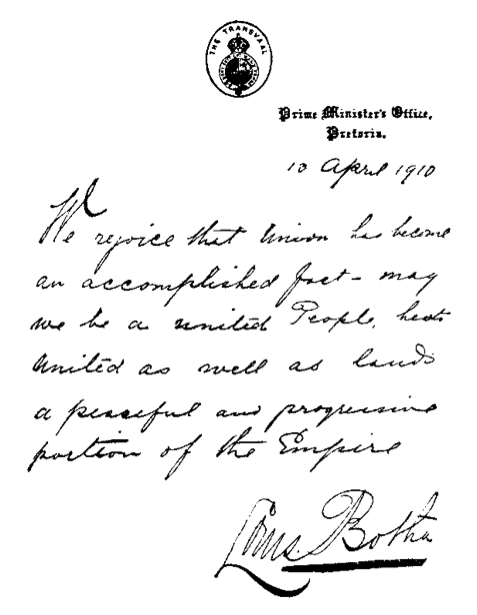 THE TRANSVAAL
Prime Minister's Office,
Pretoria.
10 April 1910
We rejoice that Union has become
an accomplished fact – may
we be a united People,
United as well as lands
a peaceful and progressive
portion of the Empire
Louis Botha